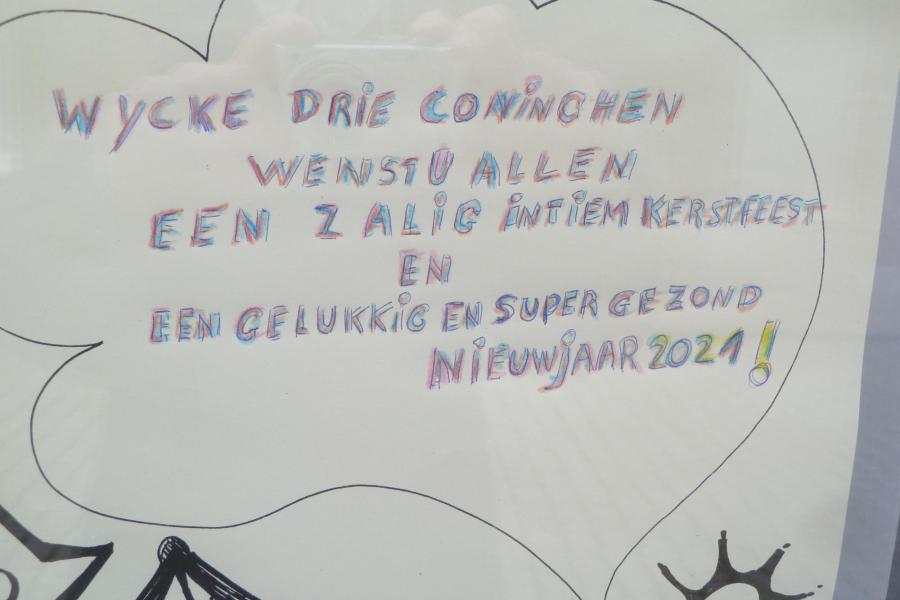 WYCKE DRiE CONiNCHEN
WENST U ALLEN
EEN ZALiG iNTiEM KERSTFEEST
EN
EEN GELUKKiG EN SUPER GEZOND
NiEUWjAAR 2021!